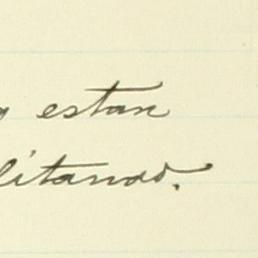 estan
litando.